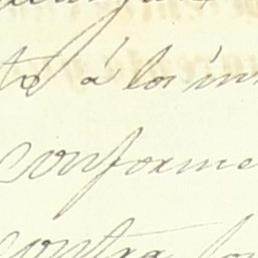 tó á los in
conforme
contra lo